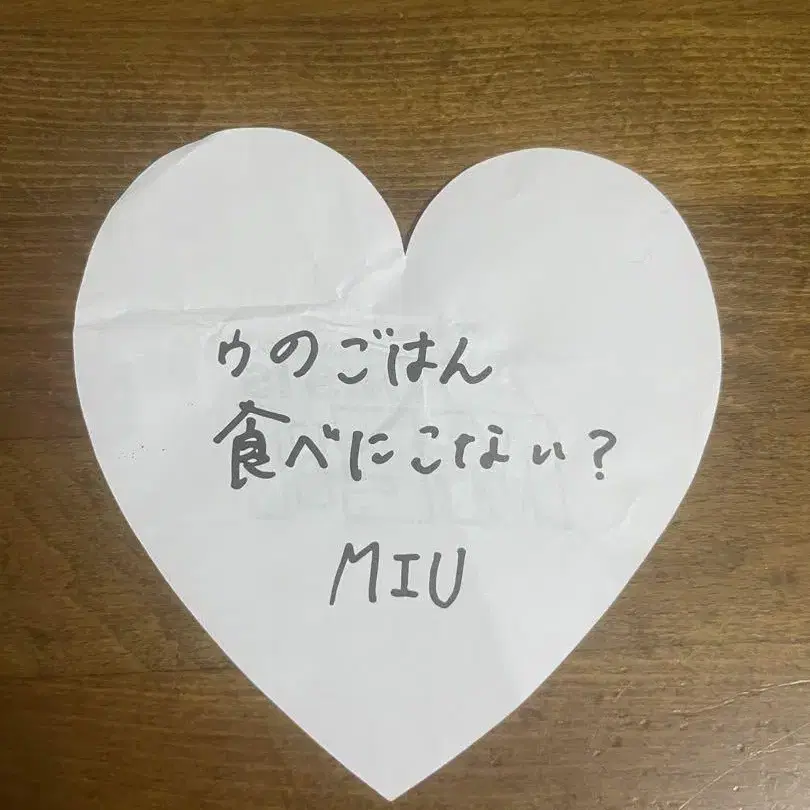 ウのごはん
食べにこない?
MIU